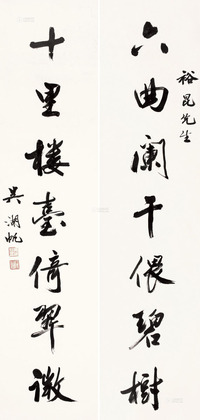 六曲阑干偎碧树
裕昆先生
十里楼臺倚翠微
吴湖帆